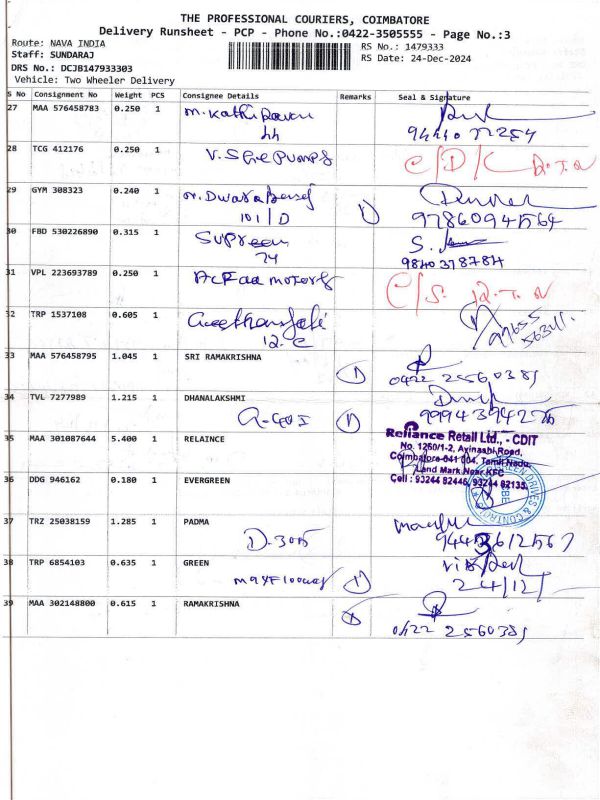 THE PROFESSIONAL COURIERS, COIMBATORE
Delivery Runsheet - PCP - Phone No.:0422-3505555 - Page No.:3
Route: NAVA INDIA
RS No.: 1479333
Staff: SUNDARAJ
RS Date: 24-Dec-2024
DRS No.: DCJB147933303
Vehicle: Two Wheeler Delivery
S No Consignment No Weight PCS Consignee Details Remarks Seal & Signature
27 MAA 576458783 0.250 1 M. Kathiravan
94440 77254
28 TCG 412176 0.250 1 V. Sree Pumps C/D/C R.T.N
29 GYM 308323 0.240 1
101/D 1) 9786094564
30 FBD 530226890 0.315 1 Supreem S.
74 9840378784
31 VPL 223693789 0.250 1 motors C/S. R.T.N
32 TRP 1537108 0.605 1 Geethanjali 97655
12-C 56311
33 MAA 576458795 1.045 1 SRI RAMAKRISHNA
1) 0422 2560381
34 TVL 7277989 1.215 1 DHANALAKSHMI
1) 9994394276
35 MAA 301087644 5.400 1 RELAINCE
Reliance Retail Ltd., - CDIT
No. 1260/1-2, Avinashi Road,
Coimbatore-641 004, Tamil Nadu,
Land Mark Near KTC
Cell : 93244 82446, 93244 82135,
36 DDG 946162 0.180 1 EVERGREEN
37 TRZ 25038159 1.285 1 PADMA
D.305 9445612567
38 TRP 6854103 0.635 1 GREEN
1) 24/12/
39 MAA 302148800 0.615 1 RAMAKRISHNA
0422 2560381